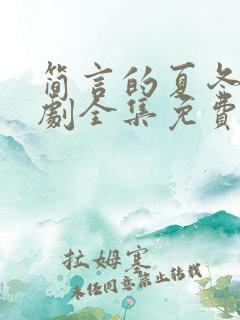 简言的夏冬
劇全集免費
拉姆寒
未经同意禁止转载